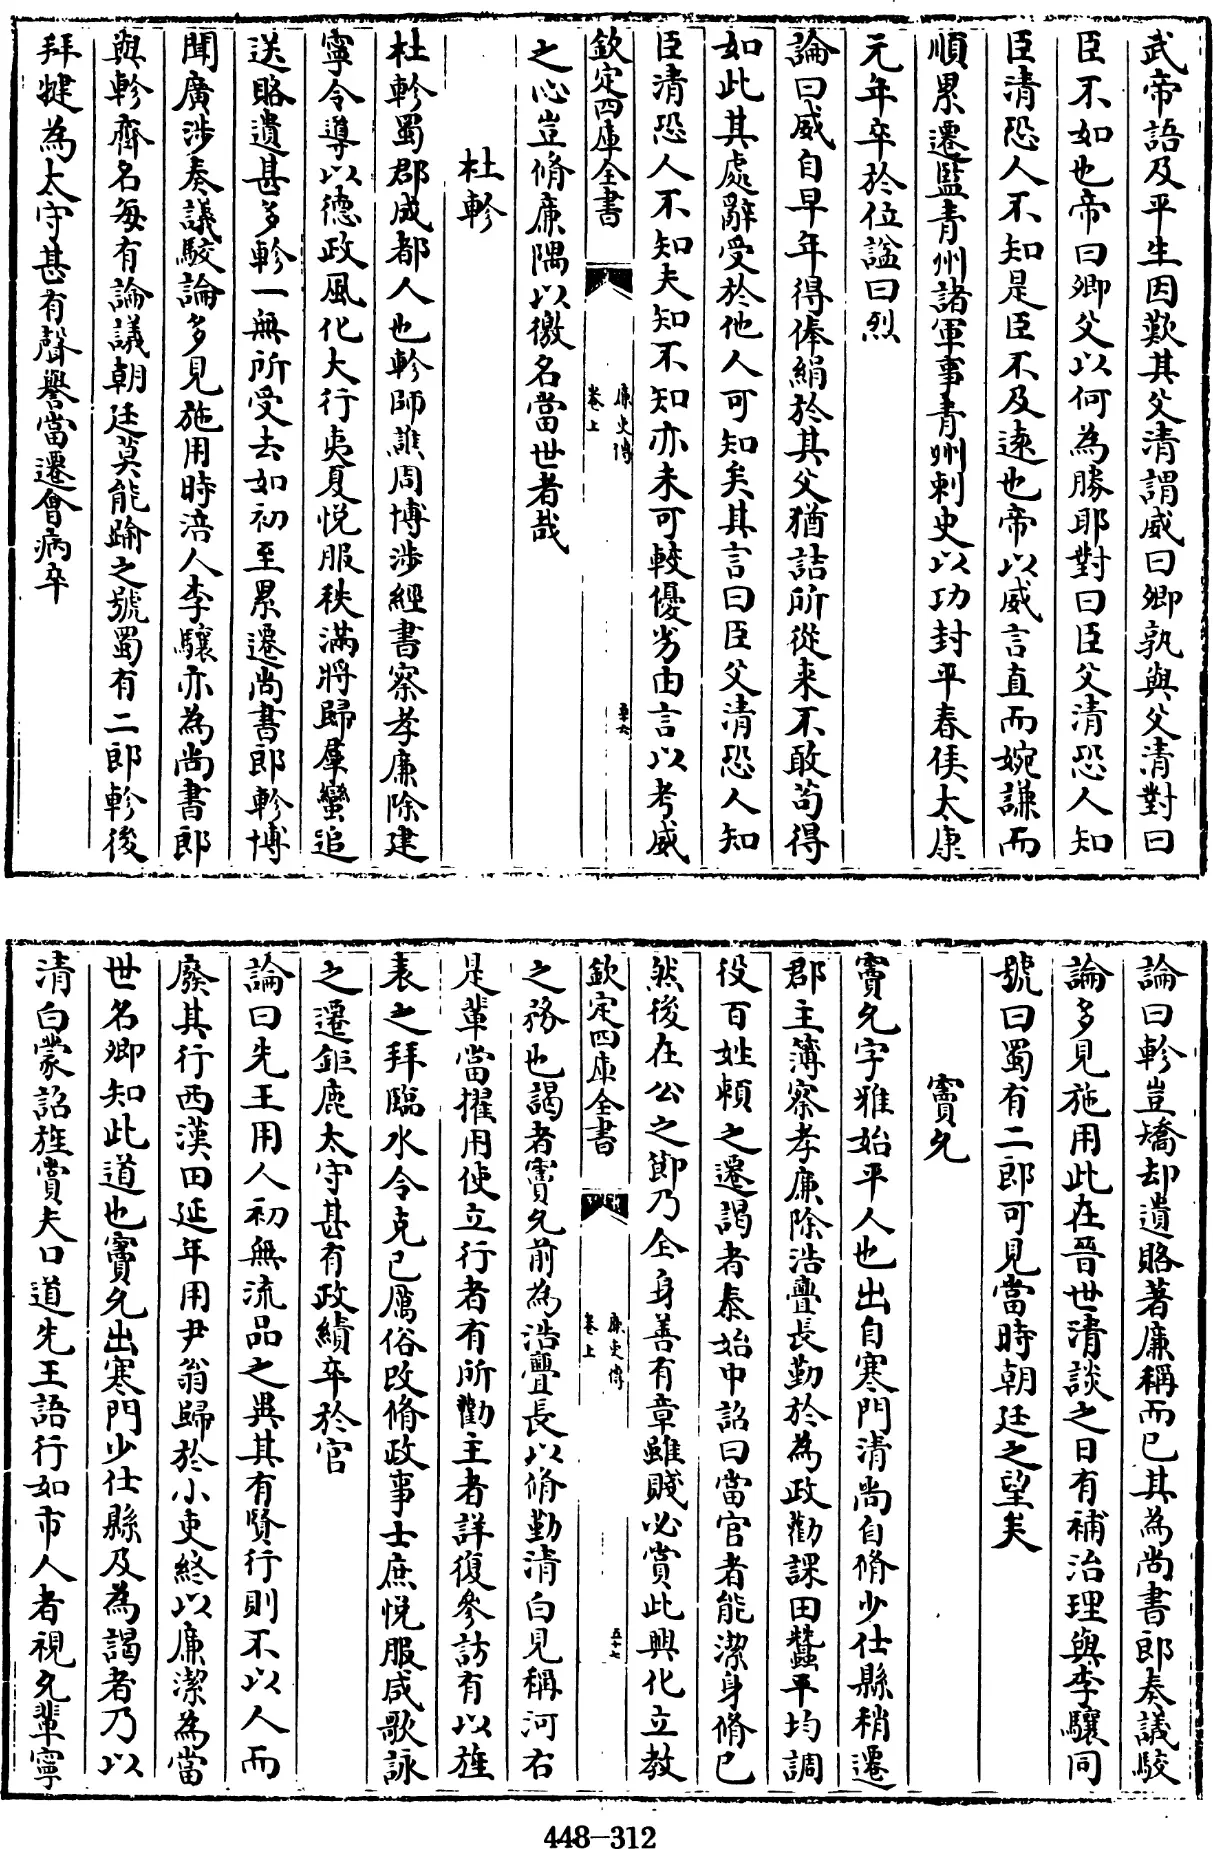 武帝語及平生因歎其父清謂威曰卿孰與父清對曰
臣不如也帝曰卿父以何為勝耶對曰臣父清恐人知
臣清恐人不知是臣不及遠也帝以威言直而婉謙而
順累遷監青州諸軍事青州刺史以功封平春侯太康
元年卒於位諡曰烈
論曰威自早年得俸絹於其父猶詰所從来不敢茍得
如此其處辭受於他人可知矣其言曰臣父清恐人知
臣清恐人不知夫知不知亦未可較優劣由言以考威
欽定四庫全書
廉吏傳
卷上
五十六
之心豈脩廉隅以徼名當世者哉
杜軫
杜軫蜀郡成都人也軫師譙周博涉經書察孝廉除建
寧令導以德政風化大行夷夏悅服秩滿將歸羣蠻追
送賂遺甚多軫一無所受去如初至累遷尚書郎軫博
聞廣涉奏議駮論多見施用時涪人李驤亦為尚書郎
與軫齊名每有論議朝廷莫能踰之號蜀有二郎軫後
拜犍為太守甚有聲譽當遷會病卒
論曰軫豈矯却遺賂著廉稱而已其為尚書郎奏議駮
論多見施用此在晉世清談之日有補治理與李驤同
號曰蜀有二郎可見當時朝廷之望矣
竇允
竇允字雅始平人也出自寒門清尚自脩少仕縣稍遷
郡主簿察孝廉除浩亹長勤於為政勸課田蠶平均調
役百姓賴之遷謁者泰始中詔曰當官者能潔身脩己
然後在公之節乃全身善有章雖賤必賞此興化立教
欽定四庫全書
廉吏傳
卷上
五十七
之務也謁者竇允前為浩亹長以脩勤清白見稱河右
是輩當擢用使立行者有所勸主者詳復參訪有以旌
表之拜臨水令克己厲俗改脩政事士庶悅服咸歌詠
之遷鉅鹿太守甚有政績卒於官
論曰先王用人初無流品之異其有賢行則不以人而
廢其行西漢田延年用尹翁歸於小吏終以廉潔為當
世名卿知此道也竇允出寒門少仕縣及為謁者乃以
清白蒙詔旌賞夫口道先王語行如市人者視允輩寧
448-312